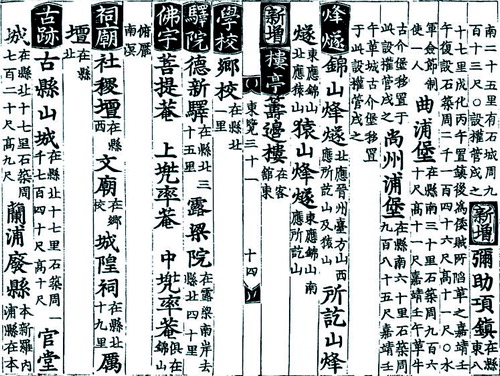 南二十五里有石城周九百十三尺○設權管戍之 新增 彌助項鎭 在縣東八
十七里成化丙午置鎭後爲倭賊所陷革之嘉靖壬午復設石築周二千一百四十六尺高十一尺○水
軍僉節制使一人 曲浦堡 在縣南三十里石築周九百六十尺高十一尺嘉靖壬午革牛
古介堡移置于此設權管戍之 尙州浦堡 在縣南六十里石築周九百八十五尺嘉靖壬
午革城古介堡移置于此設權管戍之
烽燧 錦山烽燧 北應晉州臺方山西應所訖山及猿山 所訖山烽
燧 東應錦山 猿山烽燧 東應錦山南應所訖山
新增 樓亭 籌邊樓 在客館東
東覽三十一 十四
學校 鄕校 在縣北一里
驛院 德新驛 在縣北三十五里 露梁院 在露梁南岸去縣北四十里
佛宇 菩提菴 上兠率菴 中兠率菴 俱在錦山
俯雁南溟
祠廟 社稷壇 在縣西 文廟 在鄕校 城隍祠 在縣北十九里 厲
壇 在縣北
古跡 古縣山城 在縣北十七里石築周一千七百四十尺高十尺 官堂
城 在縣北十七里石築周七百二十尺高九尺 蘭浦廢縣 本新羅內浦縣在本